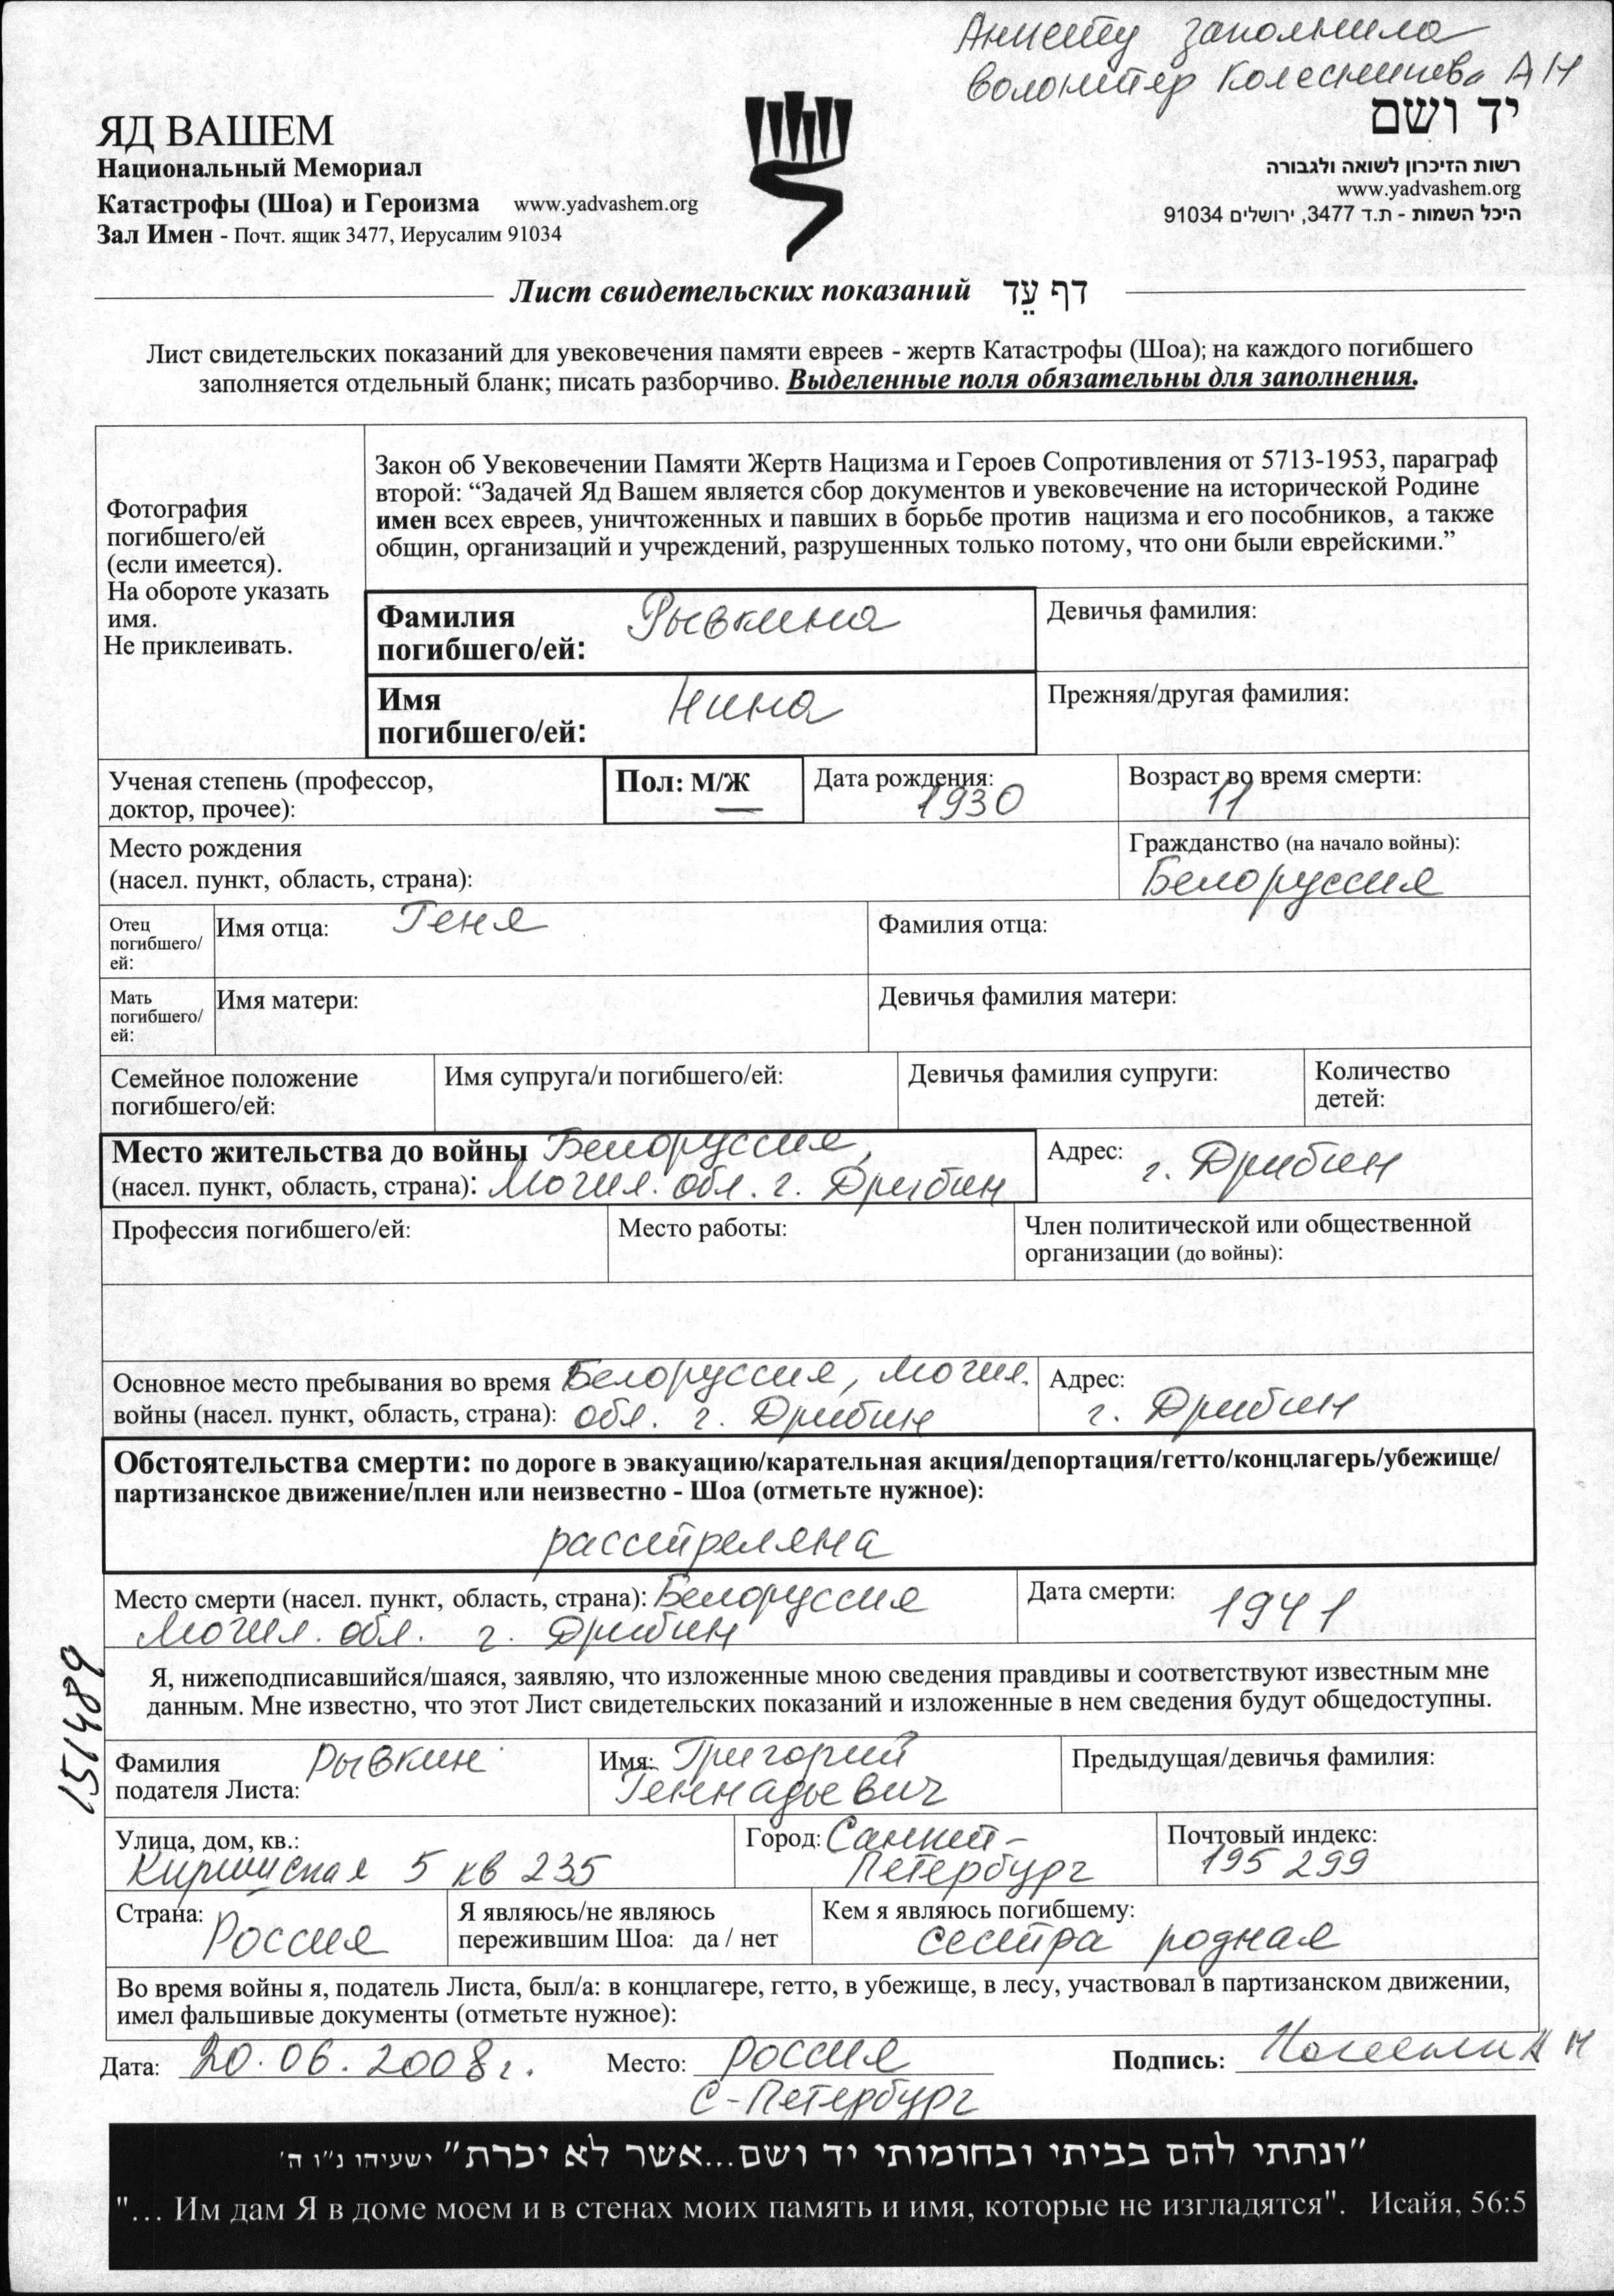 Анкету заполнила
волонтёр Колесникова А Н
ЯД ВАШЕМ
Национальный Мемориал
Катастрофы (Шоа) и Героизма www.yadvashem.org
Зал Имен - Почт. ящик 3477, Иерусалим 91034
יד ושם
רשות הזיכרון לשואה ולגבורה
www.yadvashem.org
היכל השמות - ת.ד 3477, ירושלים 91034
Лист свидетельских показаний דף עֵד
Лист свидетельских показаний для увековечения памяти евреев - жертв Катастрофы (Шоа); на каждого погибшего
заполняется отдельный бланк; писать разборчиво. Выделенные поля обязательны для заполнения.
Фотография
погибшего/ей
(если имеется).
На обороте указать
имя.
Не приклеивать.
Закон об Увековечении Памяти Жертв Нацизма и Героев Сопротивления от 5713-1953, параграф
второй: “Задачей Яд Вашем является сбор документов и увековечение на исторической Родине
имен всех евреев, уничтоженных и павших в борьбе против нацизма и его пособников, а также
общин, организаций и учреждений, разрушенных только потому, что они были еврейскими.”
Фамилия
погибшего/ей: Рывкина
Девичья фамилия:
Имя
погибшего/ей: Нина
Прежняя/другая фамилия:
Ученая степень (профессор,
доктор, прочее):
Пол: М/Ж
Дата рождения:
1930
Возраст во время смерти:
11
Место рождения
(насел. пункт, область, страна):
Гражданство (на начало войны):
Белоруссия
Отец
погибшего/
ей:
Имя отца: Геня
Фамилия отца:
Мать
погибшего/
ей:
Имя матери:
Девичья фамилия матери:
Семейное положение
погибшего/ей:
Имя супруга/и погибшего/ей:
Девичья фамилия супруги:
Количество
детей:
Место жительства до войны Белоруссия,
(насел. пункт, область, страна): Могил. обл. г. Дрибин
Адрес: г. Дрибин
Профессия погибшего/ей:
Место работы:
Член политической или общественной
организации (до войны):
Основное место пребывания во время Белоруссия, Могил.
войны (насел. пункт, область, страна): обл. г. Дрибин
Адрес:
г. Дрибин
Обстоятельства смерти: по дороге в эвакуацию/карательная акция/депортация/гетто/концлагерь/убежище/
партизанское движение/плен или неизвестно - Шоа (отметьте нужное):
расстреляна
Место смерти (насел. пункт, область, страна): Белоруссия
Могил. обл. г. Дрибин
Дата смерти: 1941
Я, нижеподписавшийся/шаяся, заявляю, что изложенные мною сведения правдивы и соответствуют известным мне
данным. Мне известно, что этот Лист свидетельских показаний и изложенные в нем сведения будут общедоступны.
151489
Фамилия
подателя Листа: Рывкин
Имя: Григорий
Геннадьевич
Предыдущая/девичья фамилия:
Улица, дом, кв.:
Киришская 5 кв 235
Город: Санкт-
Петербург
Почтовый индекс:
195 299
Страна: Россия
Я являюсь/не являюсь
пережившим Шоа: да / нет
Кем я являюсь погибшему:
сестра родная
Во время войны я, податель Листа, был/а: в концлагере, гетто, в убежище, в лесу, участвовал в партизанском движении,
имел фальшивые документы (отметьте нужное):
Дата: 20.06.2008г. Место: Россия
С-Петербург
Подпись:
"ונתתי להם בביתי ובחומותי יד ושם...אשר לא יכרת" ישעיהו נ"ו ה'
"... Им дам Я в доме моем и в стенах моих память и имя, которые не изгладятся". Исайя, 56:5